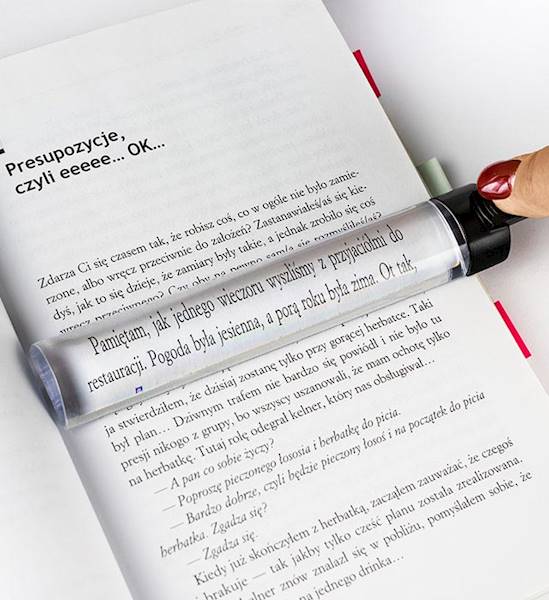 Presupozycje,
czyli eeeee... OK...
Zdarza Ci się czasem tak, że robisz coś, co w ogóle nie było zamie-
rzone, albo wręcz przeciwnie do założeń? Zastanawiałeś/aś się kie-
dyś, jak to się dzieje, że zamiary były takie, a jednak zrobiło się coś
wręcz przeciwnego? Czy aby na pewno sam/a się rozmyśliłeś/aś?
Pamiętam, jak jednego wieczoru wyszliśmy z przyjaciółmi do
restauracji. Pogoda była jesienna, a porą roku była zima. Ot tak,
ja stwierdziłem, że dzisiaj zostanę tylko przy gorącej herbatce. Taki
był plan... Dziwnym trafem nie bardzo się powiódł i nie było tu
presji nikogo z grupy, bo wszyscy uszanowali, że mam ochotę tylko
na herbatkę. Tutaj rolę odegrał kelner, który nas obsługiwał...
— A pan co sobie życzy?
— Poproszę pieczonego łososia i herbatkę do picia.
— Bardzo dobrze, czyli będzie pieczony łosoś i na początek do picia
herbatka. Zgadza się?
— Zgadza się.
Kiedy już skończyłem z herbatką, zacząłem zauważać, że czegoś
brakuje — tak jakby tylko część planu została zrealizowana.
kelner znów znalazł się w pobliżu, pomyślałem sobie, że
na jednego drinka...